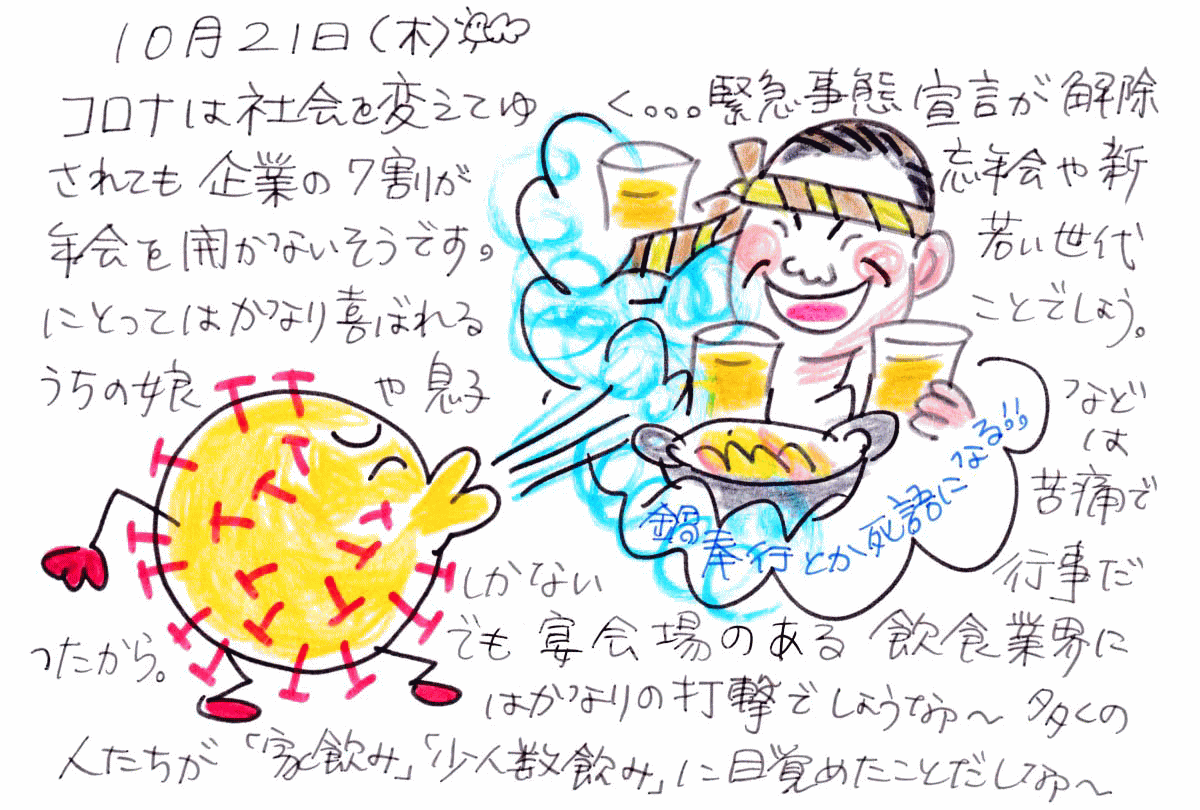 10月21日(木)
コロナは社会を変えてゆく。。。緊急事態宣言が解除
されても企業の7割が忘年会や新
年会を開かないそうです。若い世代
にとってはかなり喜ばれることでしょう。
うちの娘や息子など
は
苦痛で
しかない行事だ
ったから。でも宴会場のある飲食業界に
はかなりの打撃でしょうなァ〜多くの
人たちが「家飲み」「少人数飲み」に目覚めたことだしなァ〜
鍋奉行とか死語になる!!